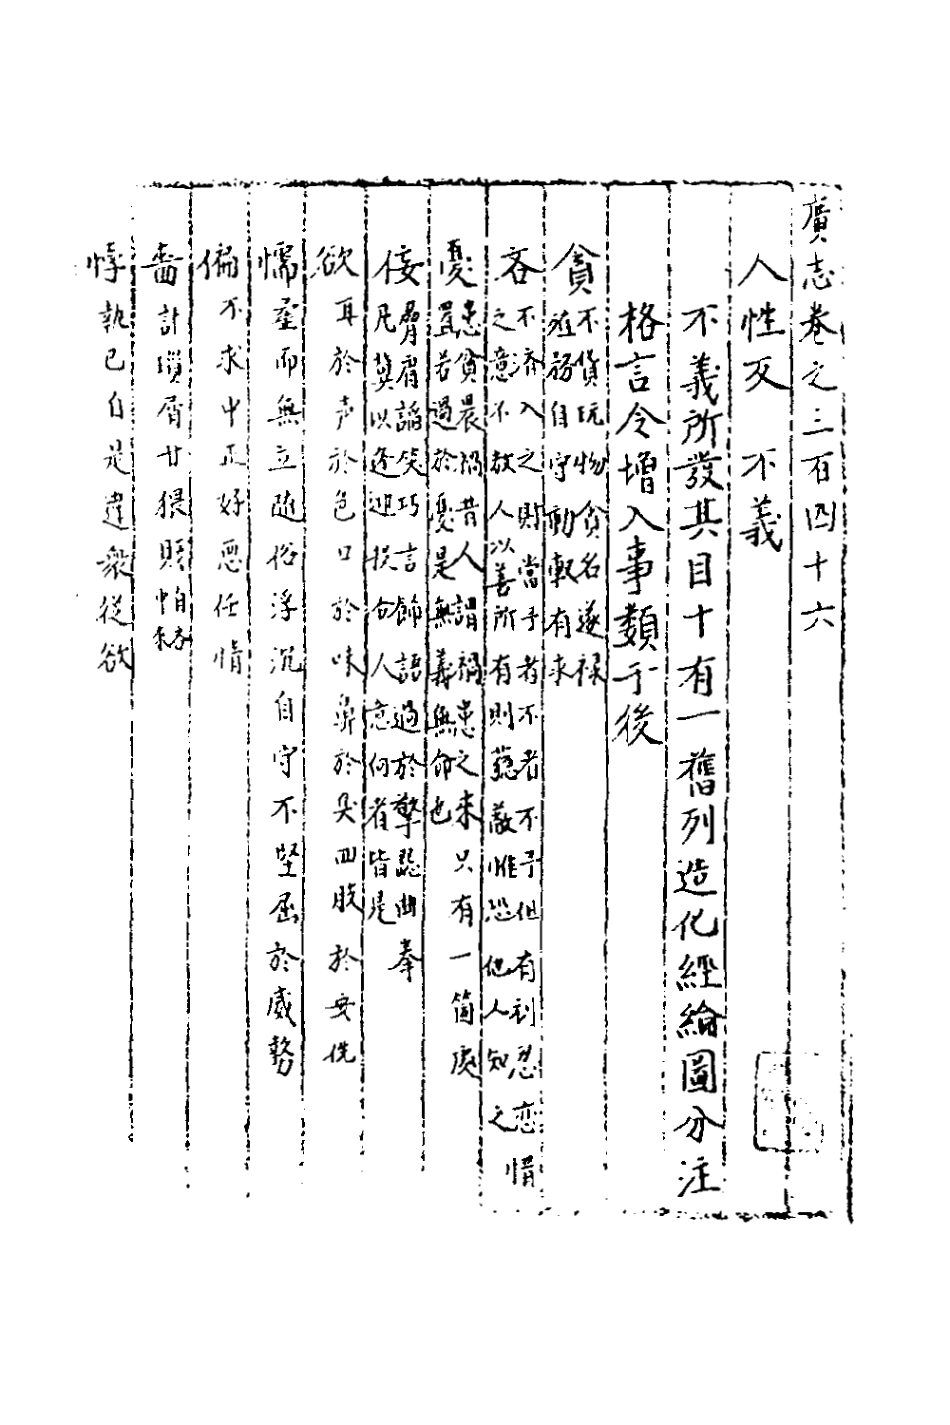 廣志卷之三百四十六
人性反　不義
不義所發其目十有一舊列造化經綸圖分注
格言令增入事類于後
貪不貨玩物貪名遂祿
莅務自守動輒有求
吝不濟人之財當予者不者不予但有刻忍恋惜
之意不教人以善所有則蔽惟恐他人知之
憂患貧畏禍昔人謂禍患之來只有一箇處
置若過於憂是無義無命也
佞脅肩謟笑巧言飾語過於擎跽曲拳
凡冀以逢迎投合人意向者皆是
欲耳於声於色口於味鼻於臭四肢於安佚
懦產而無立隨俗浮沉自守不堅屈於威勢
偏不求中正好惡任情
嗇計瑣屑甘猥賤
悖執已自是違衆從欲